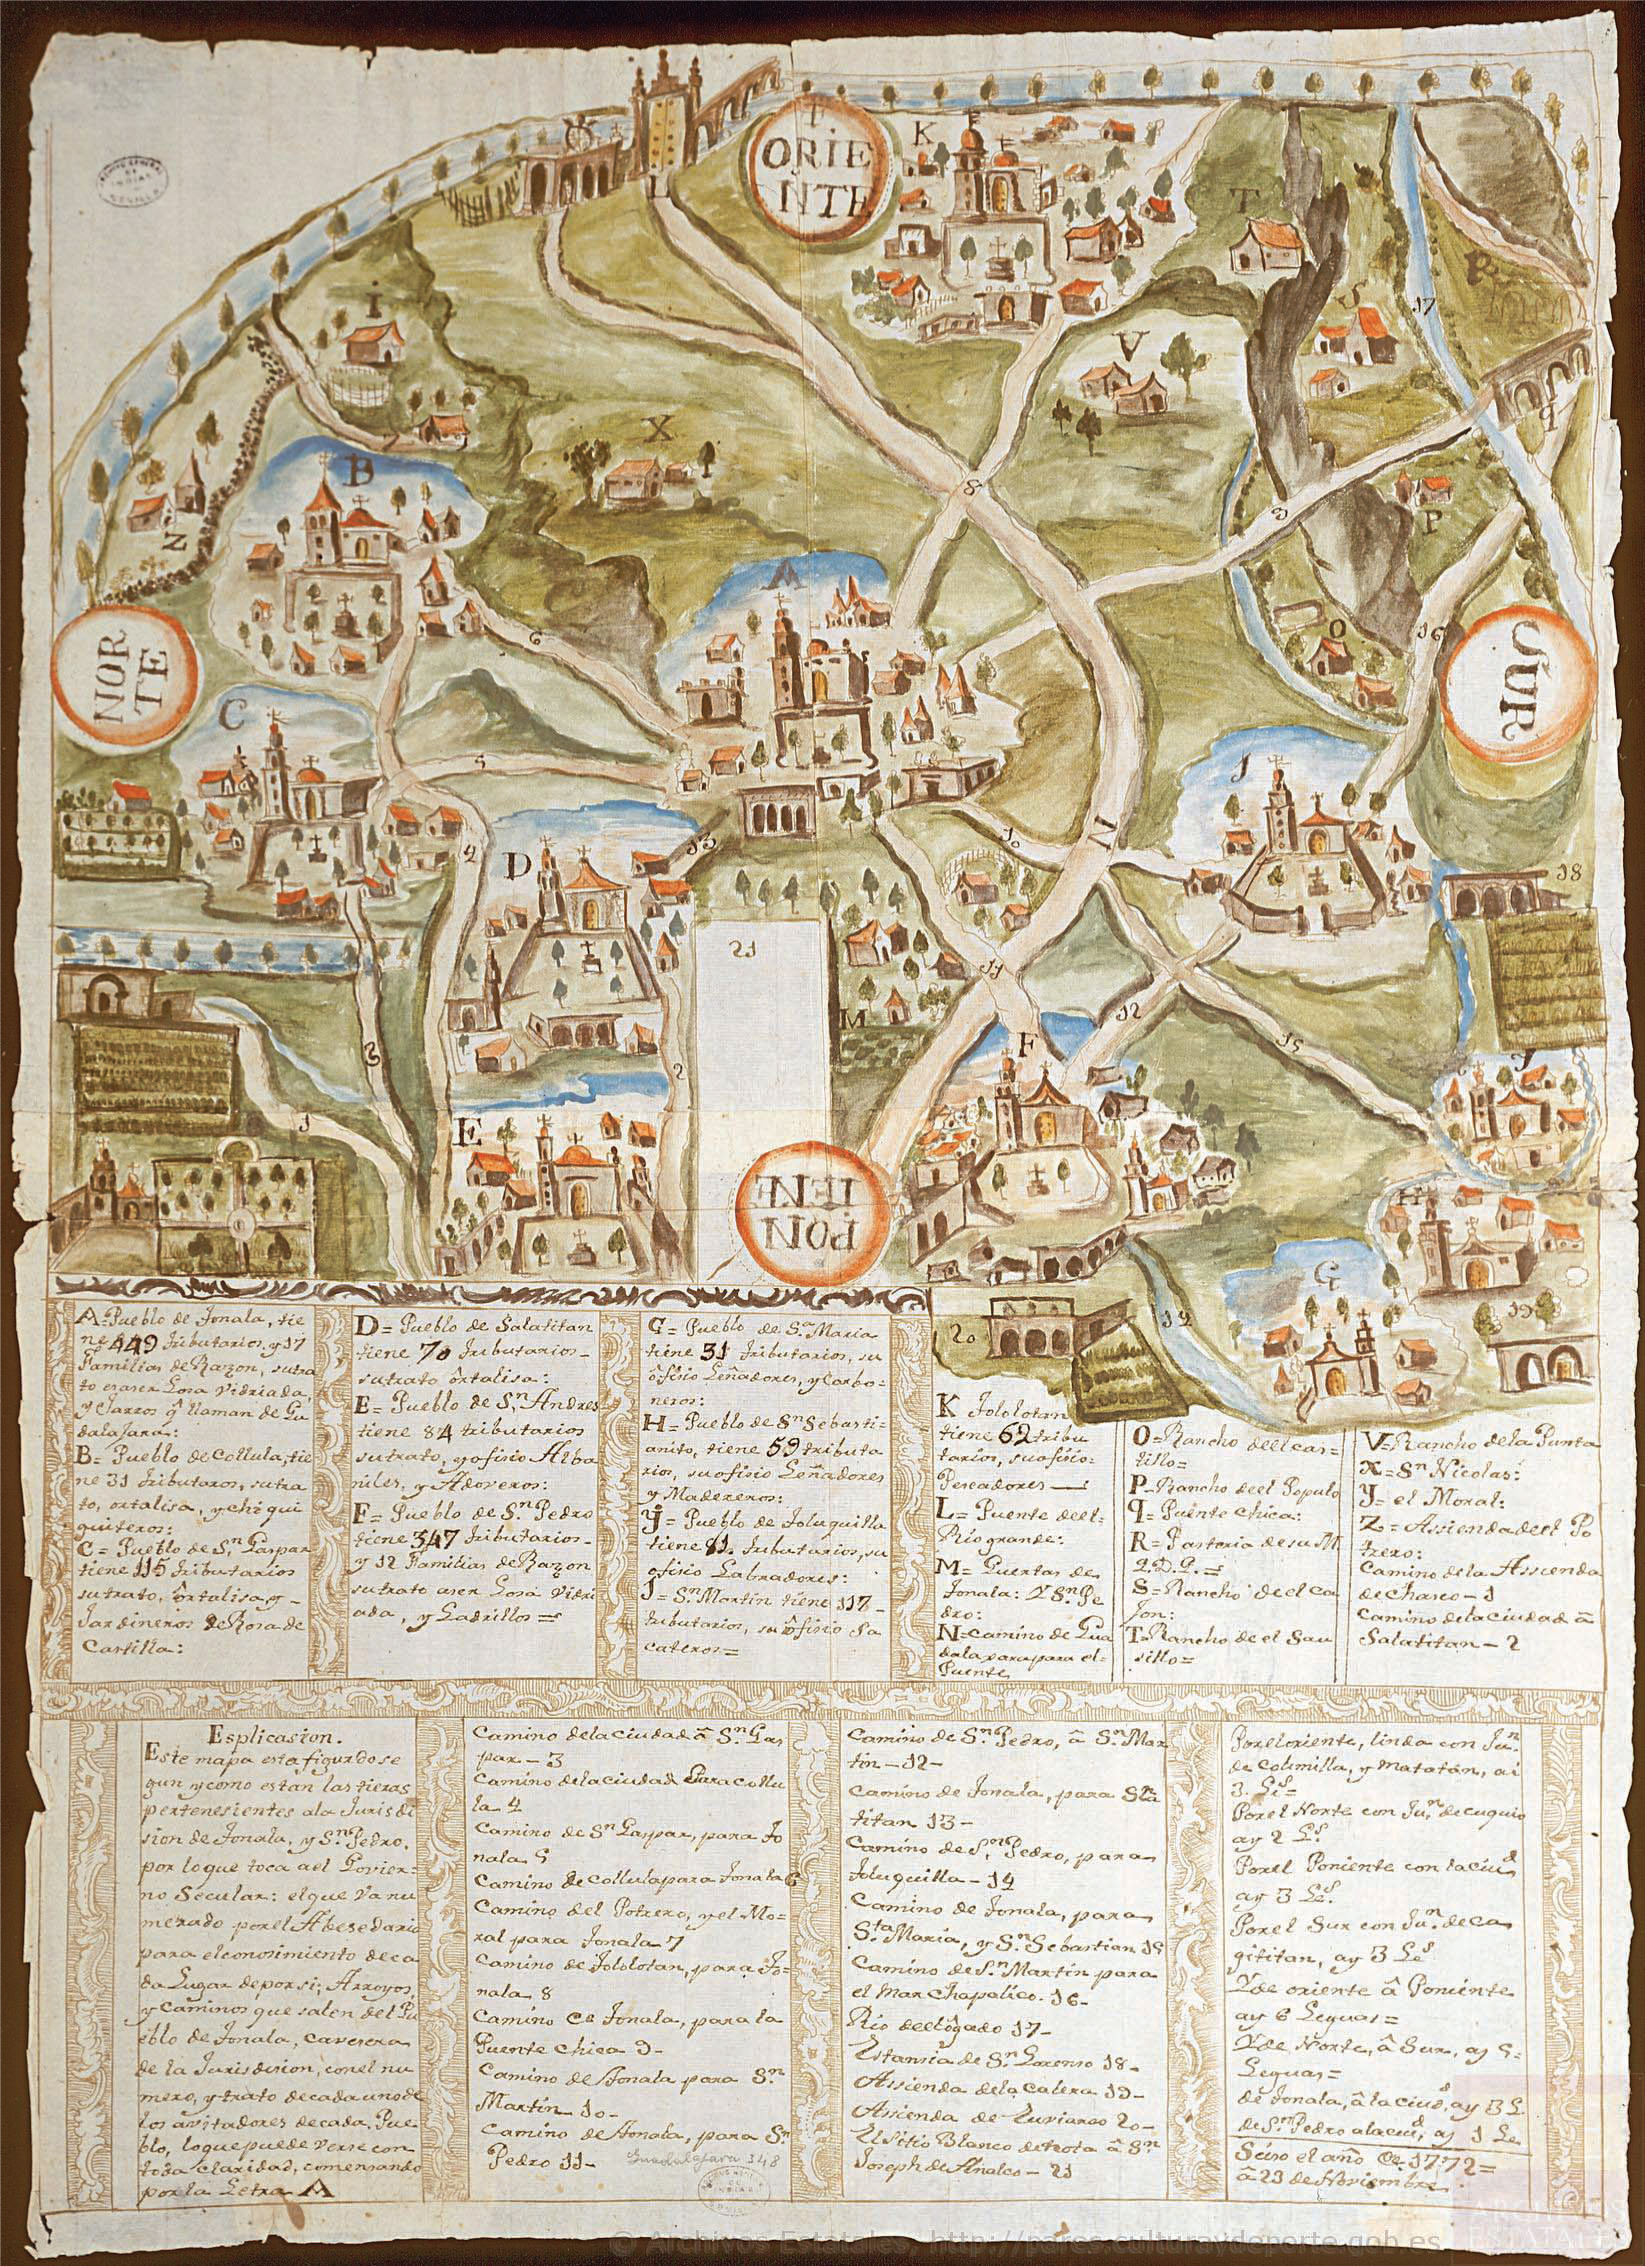 ORIE
NTE
K
L
T
I
V
X
B
17
R
S
q
8
9
P
Z
A
6
O
16
NOR
TE
SUR
C
5
J
D
13
10
N
4
18
21
11
M
12
15
3
F
2
1
E
H
PON
IENE
G
14
19
20
A= Pueblo de Tonala, tie
ne 449 tributarios, y 17
Familias de Razon, su tra
to es aser Losa Vidriada,
y Jarros q̂ llaman de Gu
dalajara:
B= Pueblo de Collula, tie
ne 31 tributaros, su tra
to, ortalisa, y chi qui
quiteros:
C= Pueblo de Sn. Gaspar
tiene 115 tributarios
su trato, ôrtalisa, y
Jardineros de Rosa de
Castilla:
D= Pueblo de Salatitan
tiene 70 tributarios
su trato ôrtalisa:
E= Pueblo de Sn. Andres
tiene 84 tributarios
su trato, y ofisio Alba
ñiles, y Adoveros:
F= Pueblo de Sn. Pedro
tiene 347 tributarios
y 12 Familias de Razon
su trato aser Losa Vidri
ada, y Ladrillos=
G= Pueblo de Sa. Maria
tiene 31 tributarios, su
ôfisio Leñadores, y Carbo=
neros:
H= Pueblo de Sn Sebasti=
anito, tiene 59 tributa
rios, su ofisio Leñadores
y Madereros:
Y= Pueblo de Toluquilla
tiene 81 tributarios, su
ofisio Labradores:
J= Sn. Martin tiene 117
tributarios, su ôfisio Sa
cateros=
K Tololotan
tiene 62 tribu
tarios, su ofisio=
Pescadores
L= Puente de el
Rio grande:
M= Puertas de
Tonala: Y Sn. Pe
dro:
N= camino de Gua
dalaxara para el
Puente
O= Rancho de el cas=
tillo=
P= Rancho de el Populo
q= Puente Chica:
R= Pastoria de su M.
2. D. P.=
S= Rancho de el Ca
jon:
T= Rancho de el Sau
sillo=
V= Rancho de la Punta
X= Sn Nicolas:
Y= el Moral:
Z= Assienda de el Po
trero:
Camino de la Assienda
de Charco-1
Camino de la ciudad â
Salatitan-2
Esplicasion.
Este mapa està figurdo se
gun y como estan las tieras
pertenesientes a la Jurisdi
sion de Tonala, y Sn. Pedro,
por lo que toca a el Govier=
no Secular: el que va nu
merado por el Abesedario
para el conosimiento de ca
da Lugar de por si; Arroyos,
y Caminos que salen del Pu
eblo de Tonala, cavesera
de la Jurisdision, con el nu
mero, y trato de cada uno de
los avitadores de cada Pue
blo, lo que puede verse con
toda claridad, comensando
por la Letra A
Camino de la ciudad â Sn. Gas
par-3
Camino de la ciudad Para Collu
la 4
Camino de Sn Gaspar, para To
nala 5
Camino de Collula para Tonala 6
Camino del Potrero, y el Mo=
ral para Tonala 7
Camino de Tololotan, para To=
nala 8
Camino de Tonala, para la
Puente Chica 9-
Camino de Tonala para Sn.
Martin 10-
Camino de Tonala, para Sn.
Pedro 11-
Guadalajara 348
Camino de Sn. Pedro, â Sn. Mar
tin-12-
Camino de Tonala, para Sala
titan 13-
Camino de Sn. Pedro, para
Toluquilla-14
Camino de Tonala, para
Sta. Maria, y Sn. Sebastian 15
Camino de Sn. Martin para
el Mar Chapalico. 16-
Rio de el ôgado 17-
Estansia de Sn. Lorenso 18-
Assienda de la Calera 19-
Assienda de Zuviarco 20-
El Sitio Blanco denota â Sn.
Joseph de Analco-21
Por el oriente, linda con Jun.
de Colimilla, y Matatàn, ai
3. Ls.=
Por el Norte con Jun. de Cuquio
ay 2 Ls.
Por el Poniente con la ciud.
ay 3 Ls.
Por el Sur con Jun. de Ca
gititan, ay 3 Ls.
Y de oriente â Poniente
ay 6 Leguas=
Y de Norte, â Sur, ay 5=
Leguas=
de Tonala, â la ciud. ay 3 L.
de Sn. Pedro a la ciud. ay 1 Le.
Se iso el año de 1772=
â 23 de Noviembre
© Archivos Estatales, http://pares.culturaydeporte.gob.es
ARCHIVOS
ESTATALES